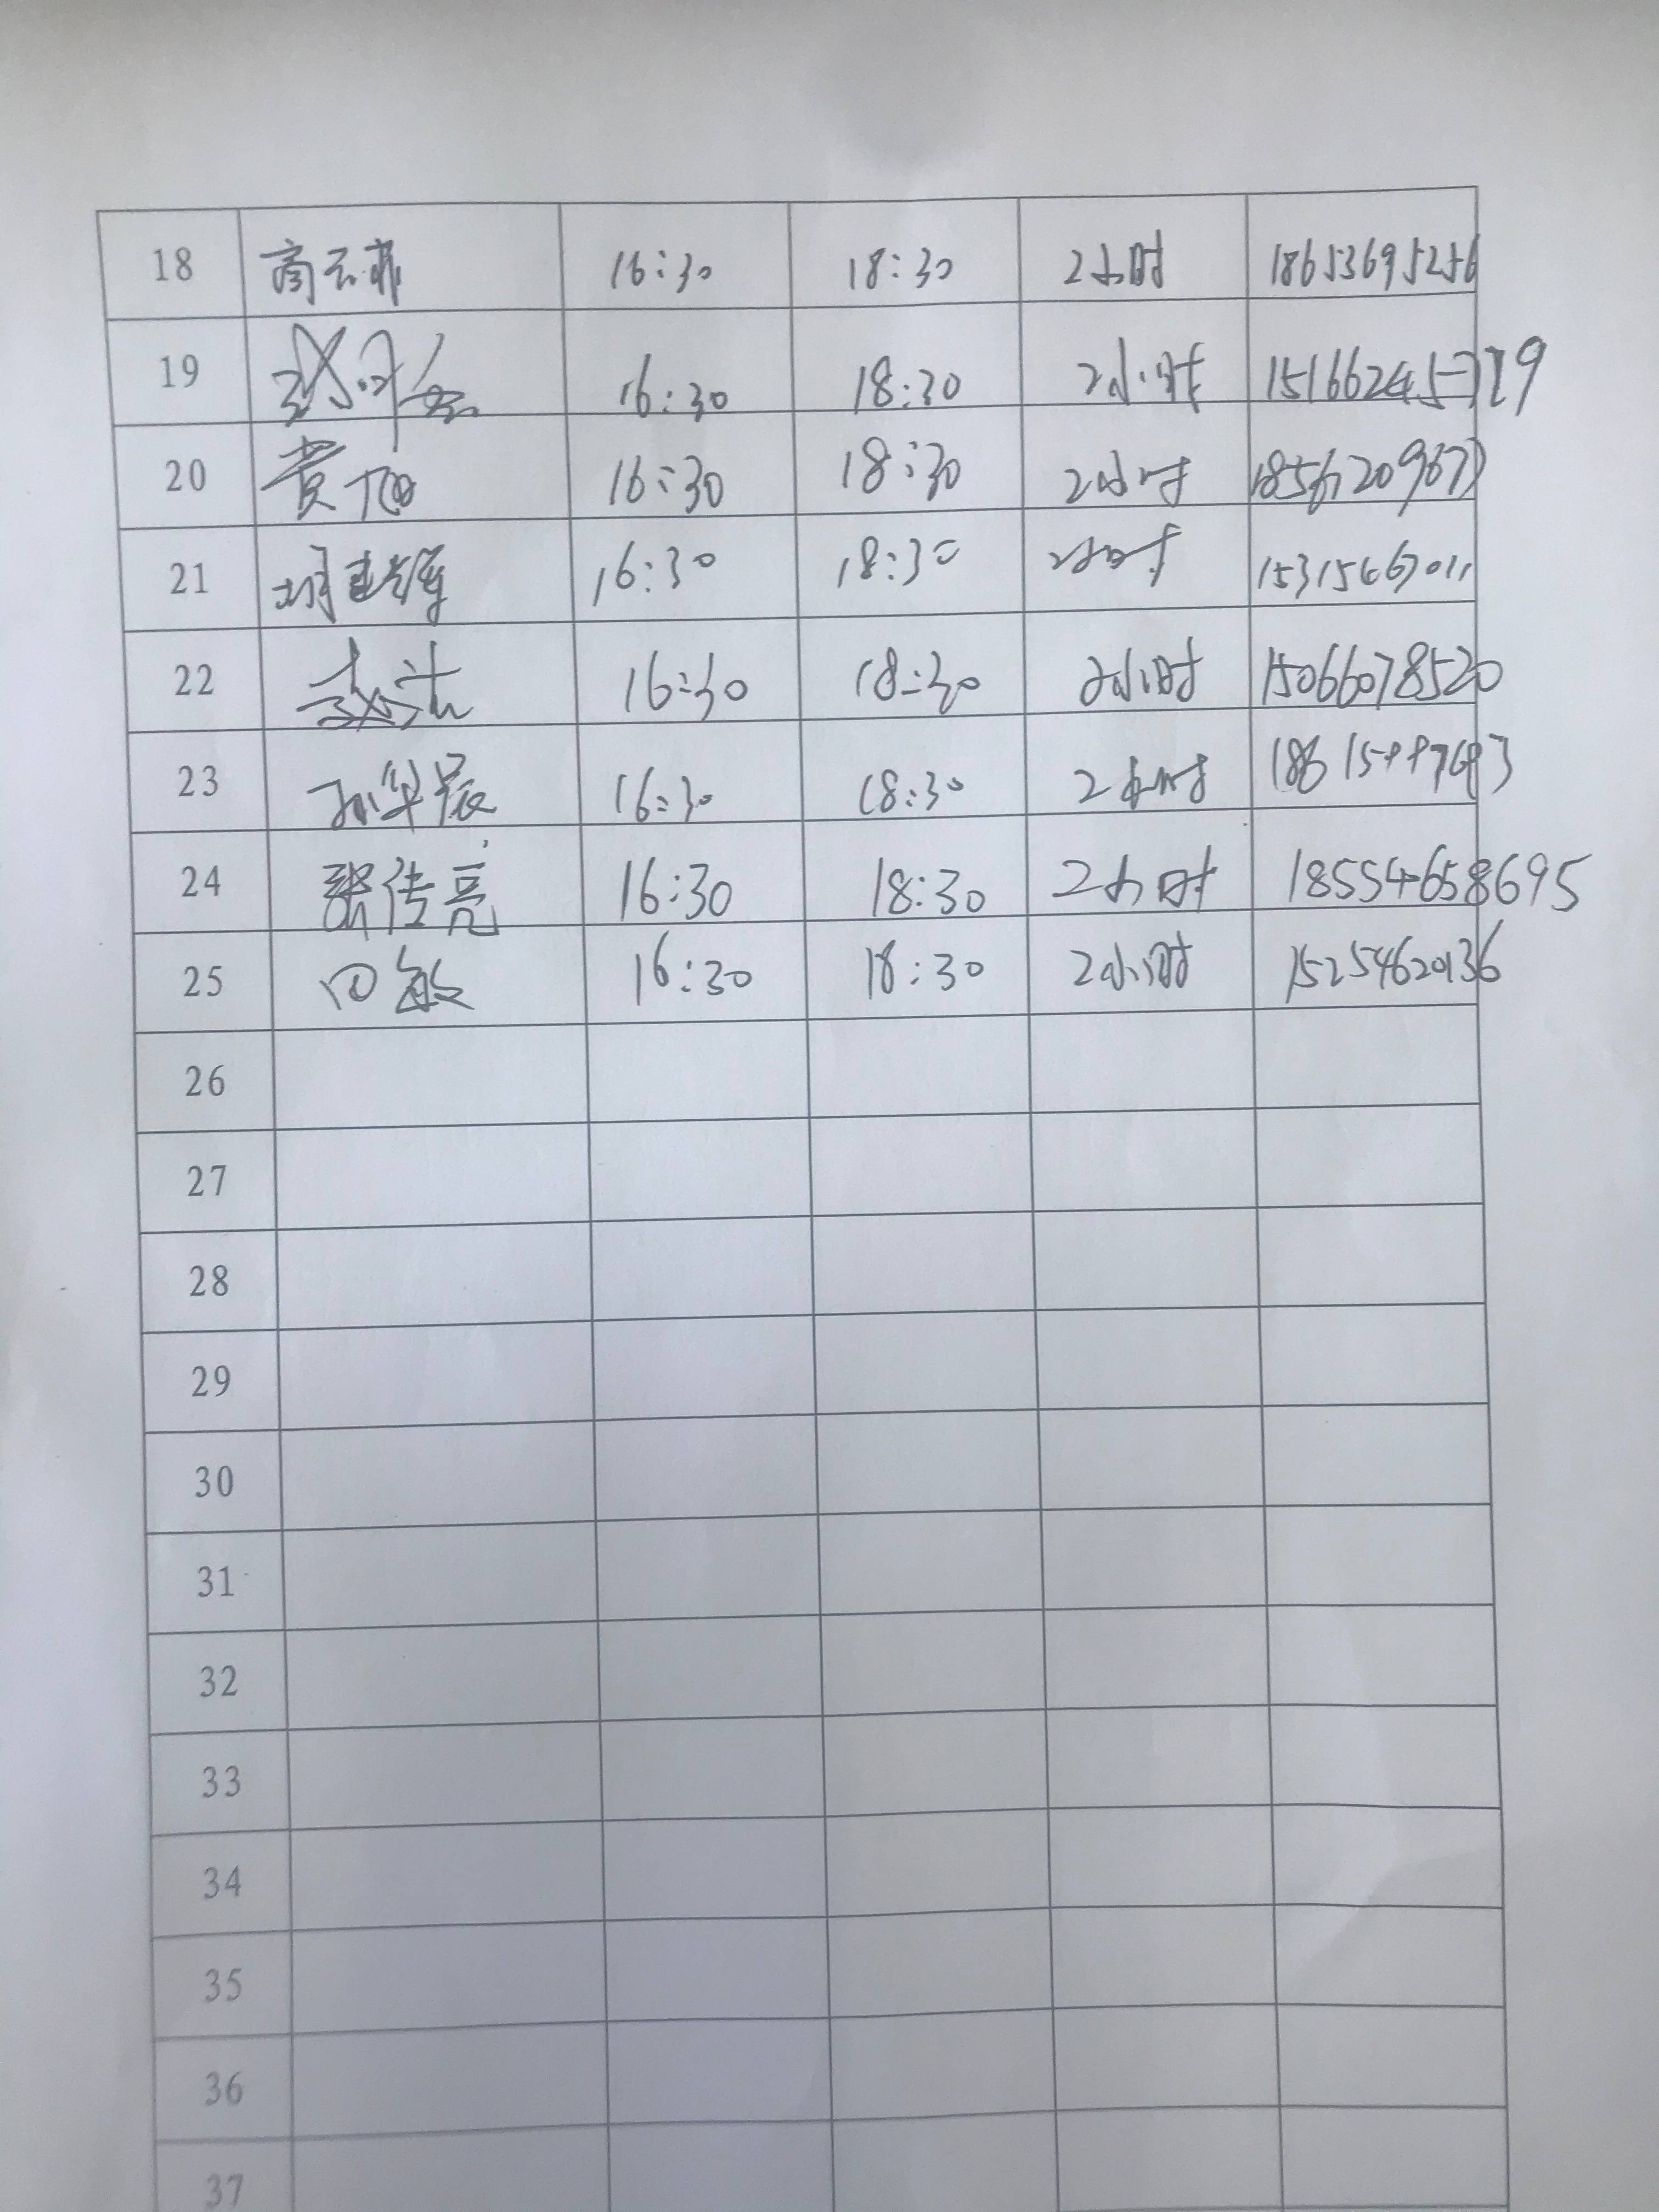 18 商云菲 16:30 18:30 2小时 18653695256
19 16:30 18:30 2小时
20 黄 16:30 18:30 2小时
21 16:30 18:30 2小时
22 16:30 18:30 2小时 15066078520
23 孙华晨 16:30 18:30 2小时
24 张传亮 16:30 18:30 2小时 18554658695
25 田敏 16:30 18:30 2小时 15254620136
26
27
28
29
30
31
32
33
34
35
36
37